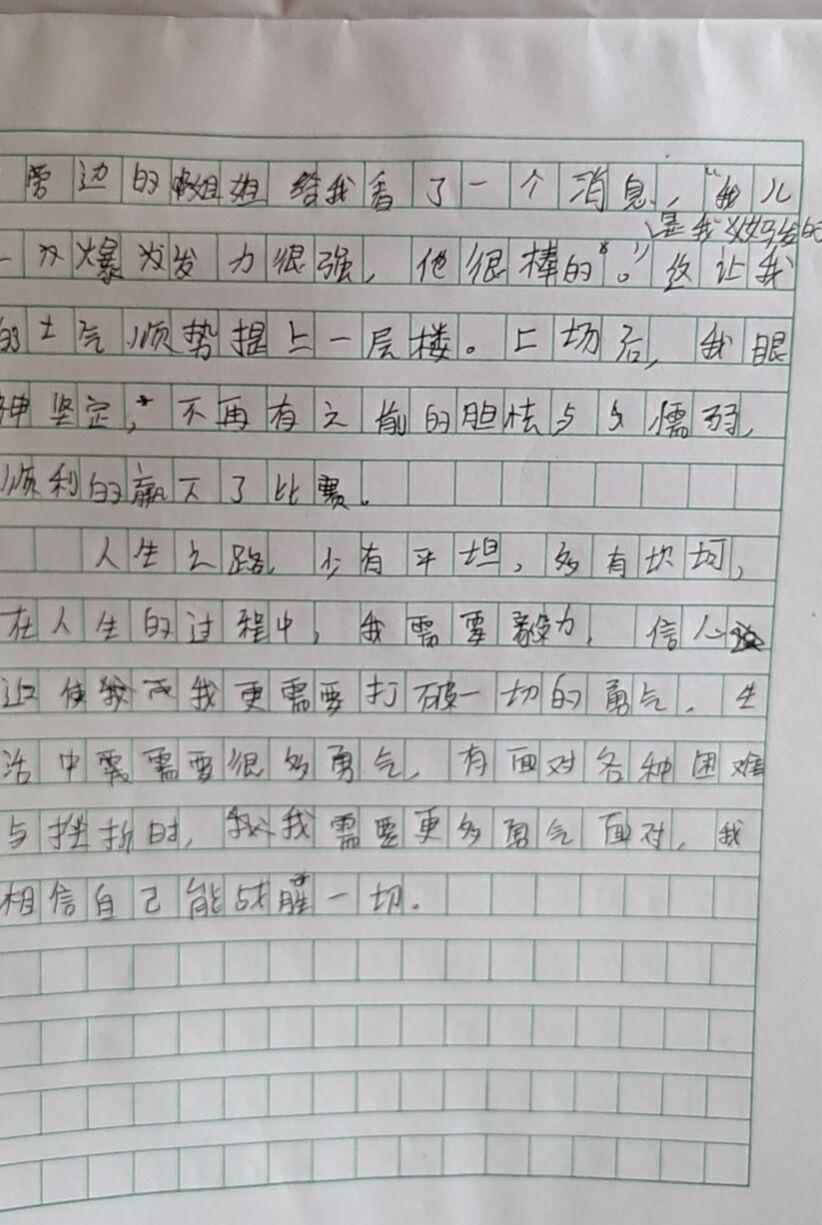 旁边的姐姐给我看了一个消息，“我儿
是我妈发的
爆发力很强，他很棒的。”这让我
的士气顺势提上一层楼。上场后，我眼
神坚定，不再有之前的胆怯与懦弱，
顺利的赢下了比赛。
人生之路，少有平坦，多有坎坷，
在人生的过程中，我需要毅力，信心
使我更需要打破一切的勇气．生
活中需要很多勇气，有面对各种困难
与挫折时，我需要更多勇气面对，我
相信自己能战胜一切．